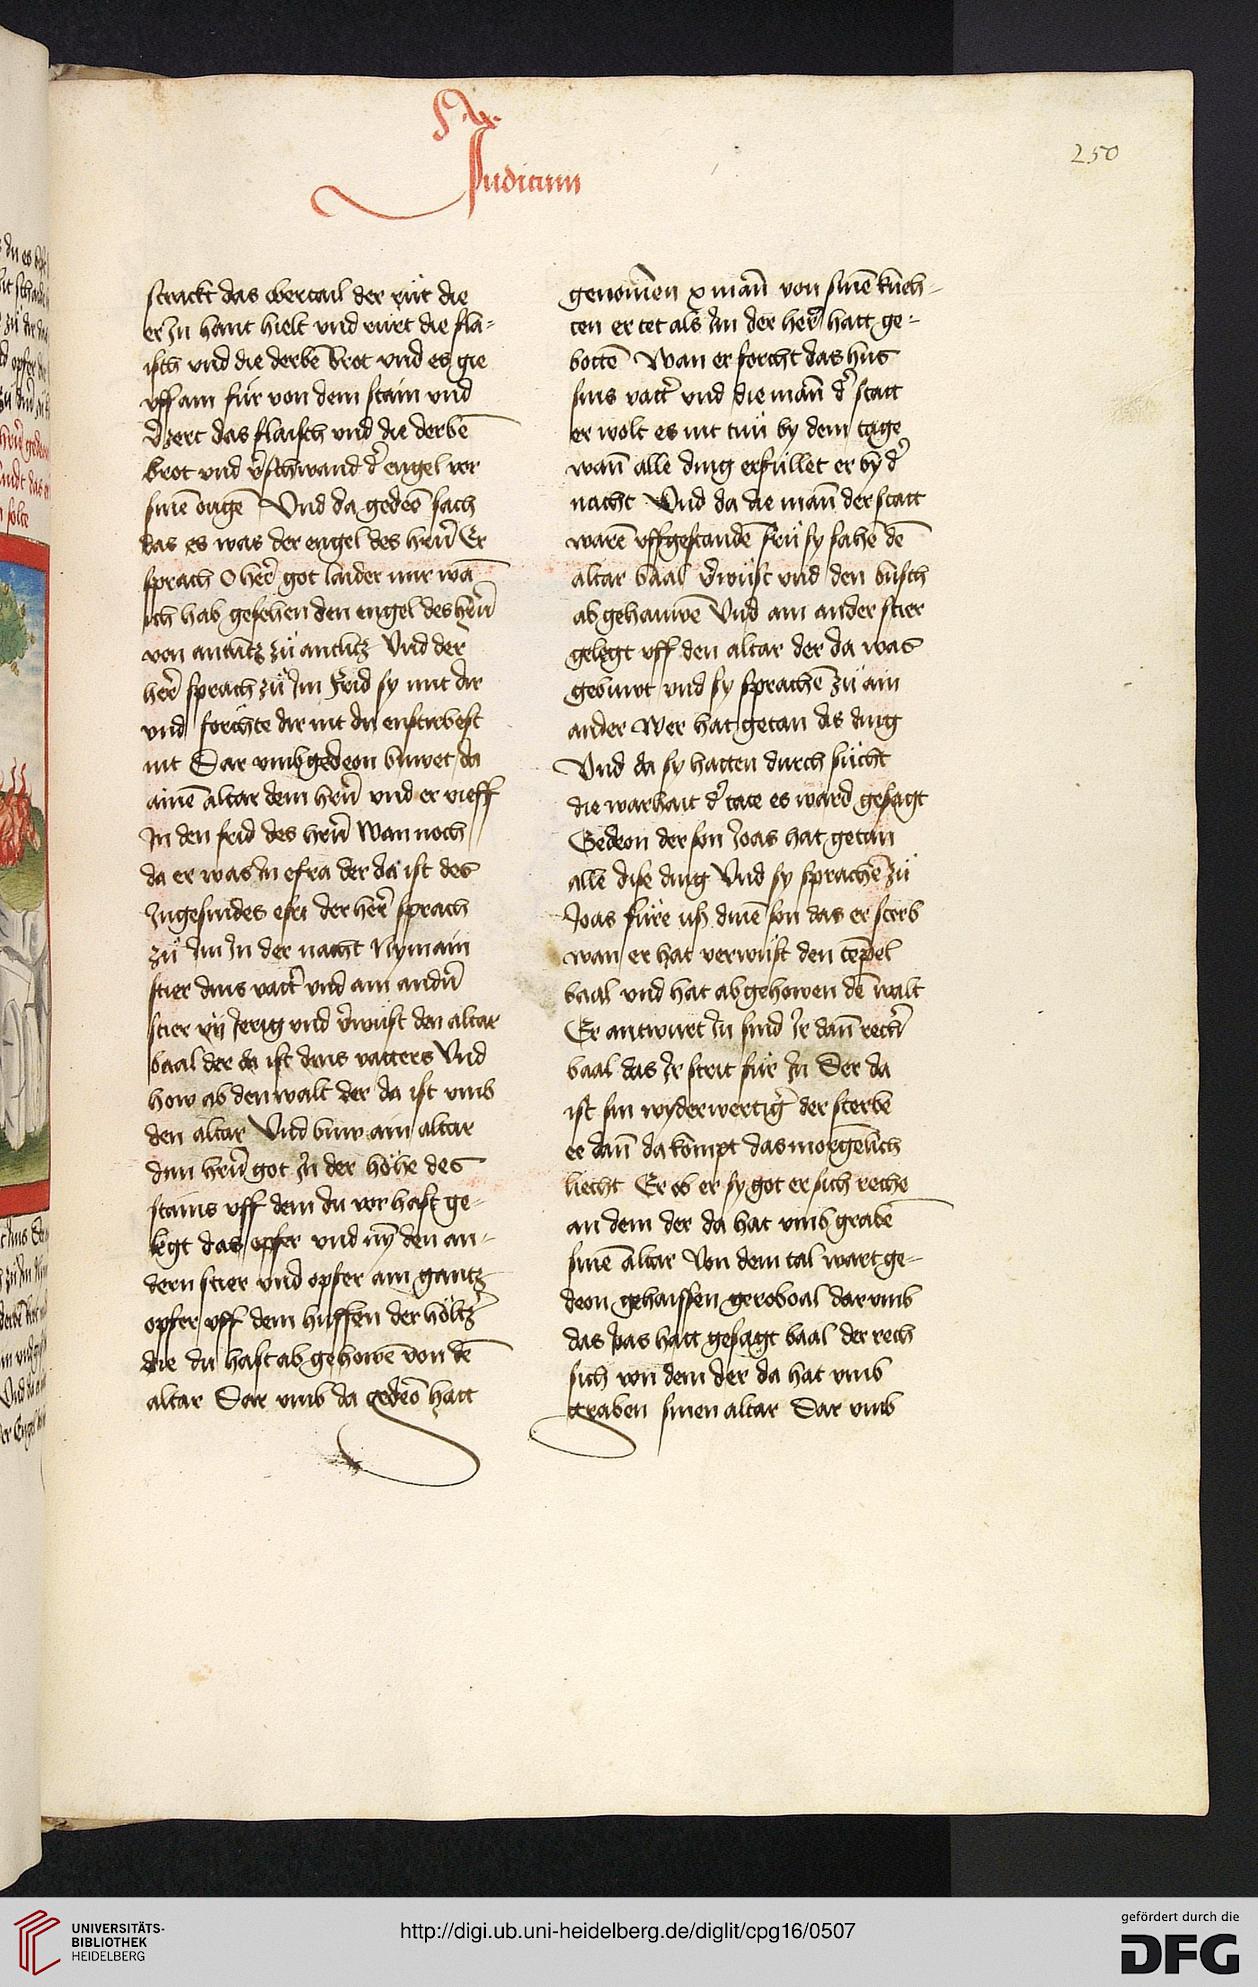 Judicum
250
strackt das obertail der rut die
er Jn hant hielt vnd rurt die fla-
isch vnd die derbē brot vnd es gie
vff ain für von dem stain vnd
v̄zert das flaisch vnd die derbē
brot vnd v̄schwand d' engel vor
sinē ougē Vnd da gedeō sach
das es was der engel des hern̄ Er
sprach O her̄ got laider mir wā
ich hab gesehen den engel des hern̄
von antlitz zů antlitz Vnd der
her̄ sprach zů Jm Frid sy mit dir
vnd förchte dir nit du enstirbest
nit Dar vmb gedeon buwet da
ainē altar dem hern̄ vnd er rieff
Jn den frid des hern̄ Wan noch
da er was Jn efra der da ist des
Jngesindes esri der her̄ sprach
zů Jm Jn der nacht Nym ain
stier dins vatt' vnd ain andn̄
stier vij Jerig vnd v̄wüst den altar
baal der da ist dins vatters Vnd
how ab den walt der da ist vmb
den altar Vnd buw ain altar
dim hern̄ got Jn der höhe des
stains vff dem du vor hast ge-
legt das opfer vnd nȳ den an-
dern stier vnd opfer ain gantz
opfer vff dem huffen der höltz'
die du hast ab gehowē von dē
altar Dar vmb da gedeō hatt
genomen x man̄ von sinē knech-
ten er tet als Jm der her̄ hatt ge-
bottē Wan er forcht das hus
sins vatt' vnd die man̄ d' statt
er wolt es nit tun by dem tage
wan̄ alle ding erfüllet er by d'
nacht Vnd da die man̄ der statt
warē vffgestandē frü sy sahē dē
altar baal v̄wüst vnd den busch
ab gehauwē Vnd ain ander stier
gelegt vff den altar der da was
gebuwt vnd sy sprachē zů ain
ander Wer hat getan dis ding
Vnd da sy hatten durch sücht
die warhait d' tate es ward gesagt
Gedeon der son Joas hat getan
alle dise ding Vnd sy sprachē zů
Joas füre uß dinē son das er sterb
wan er hat verwüst den tēpel
baal vnd hat ab gehowen dē walt
Er antwurt Jn sind Jr dan̄ rech'
baal das Jr strit für Jn Der da
ist sin wyderwertig' der sterbe
ee dan̄ da kompt das morgēlich
liecht Er ob er sy got er sich reche
an dem der da hat vmb grabē
sinē altar Von dem tal wart ge-
deon gehaissen geroboal dar vmb
das Joas hatt gesagt baal der rech
sich von dem der da hat vmb
graben sinen altar Dar vmb
UNIVERSITÄTS-
BIBLIOTHEK
HEIDELBERG
http://digi.ub.uni-heidelberg.de/diglit/cpg16/0507
gefördert durch die
DFG